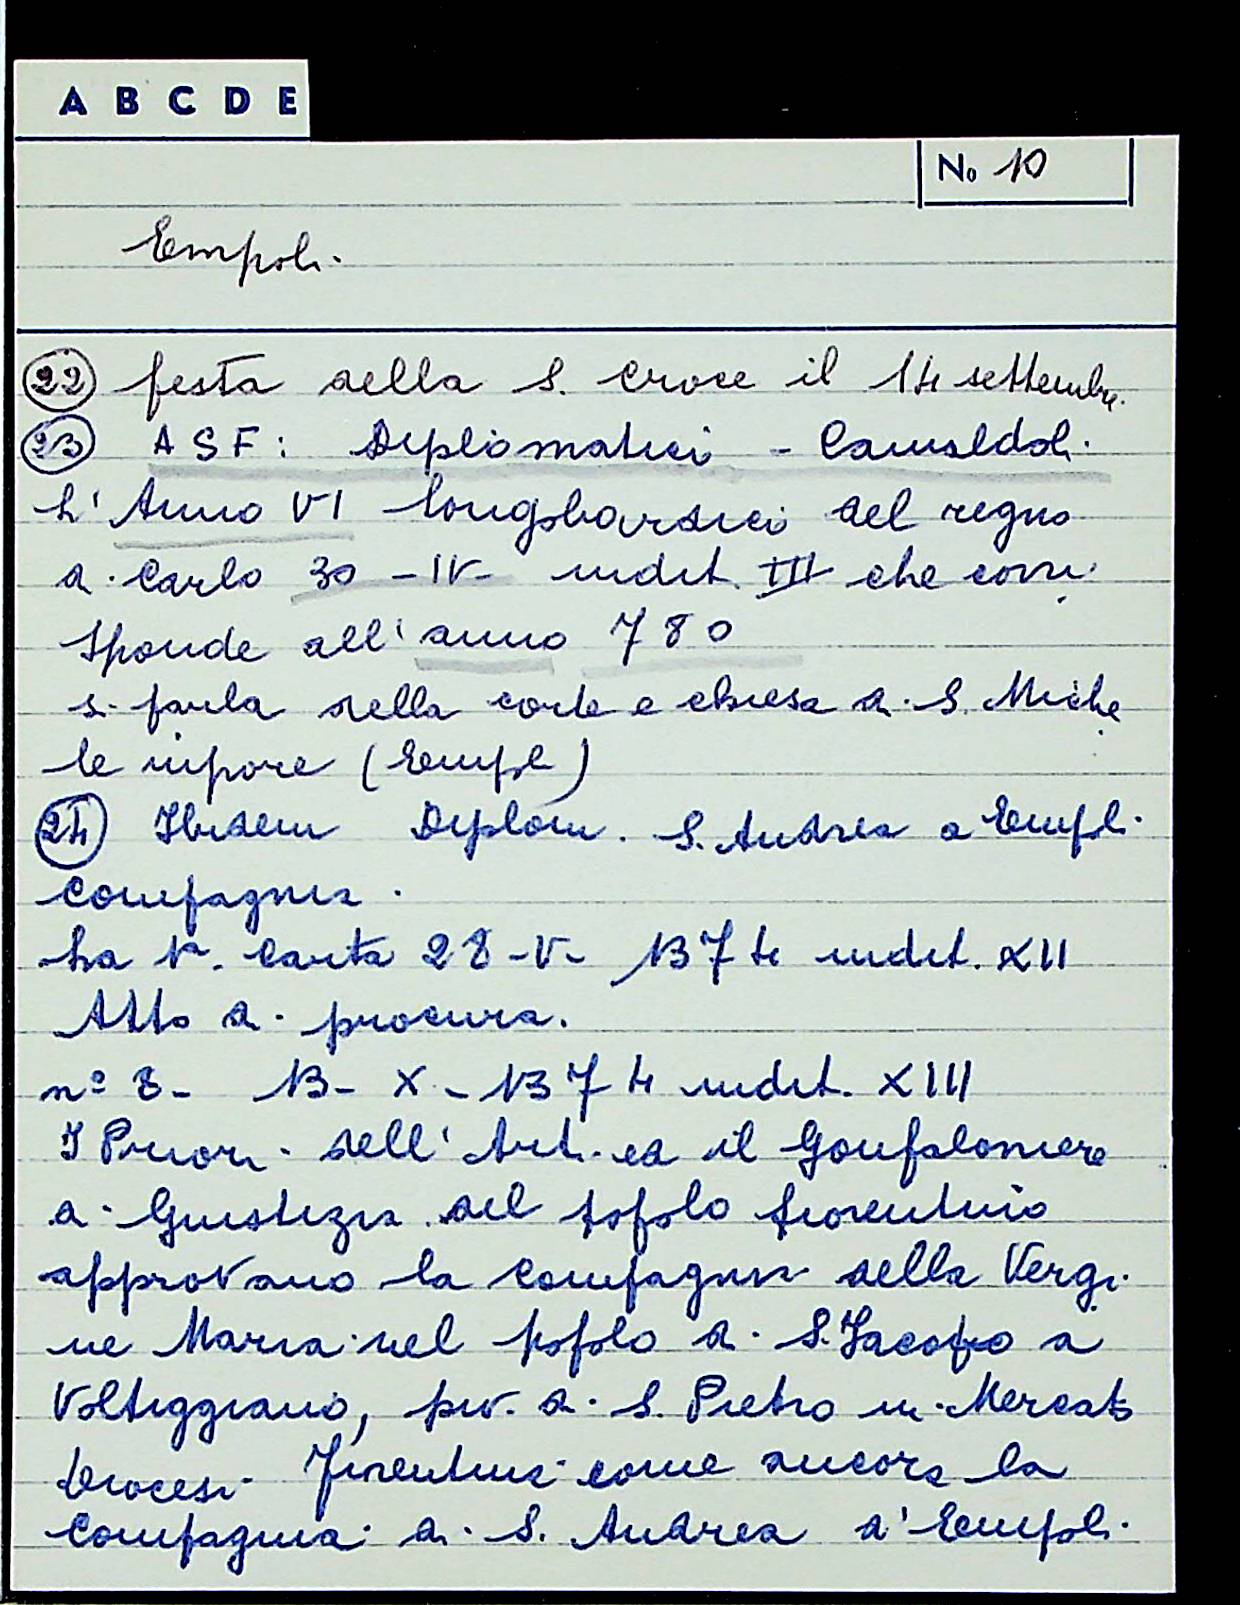 A B C D E
No 10
Empoli.
22 festa della S. Croce il 14 settembre.
23 ASF: Diplomatici - Camaldoli.
L'Anno VI longobardici del regno
di Carlo 30 - IV - indit. III che corri
sponde all'anno 780
si parla della corte e chiesa di S. Miche
le inpore (Empoli)
24 Ibidem Diplom. S. Andrea a Empoli.
compagnia.
ha 1ª. Carta 28 - V - 1374 indit. XII
Atto di procura.
nº 8 - 13 - X - 1374 indit. XIII
I Priori dell'Arti ed il Gonfaloniere
di Giustizia del popolo fiorentino
approvano la compagnia della Vergi
ne Maria nel popolo di S. Jacopo a
Voltiggiano, piv. di S. Pietro in Mercato
diocesi Fiorentina come ancora la
Compagnia di S. Andrea d'Empoli.